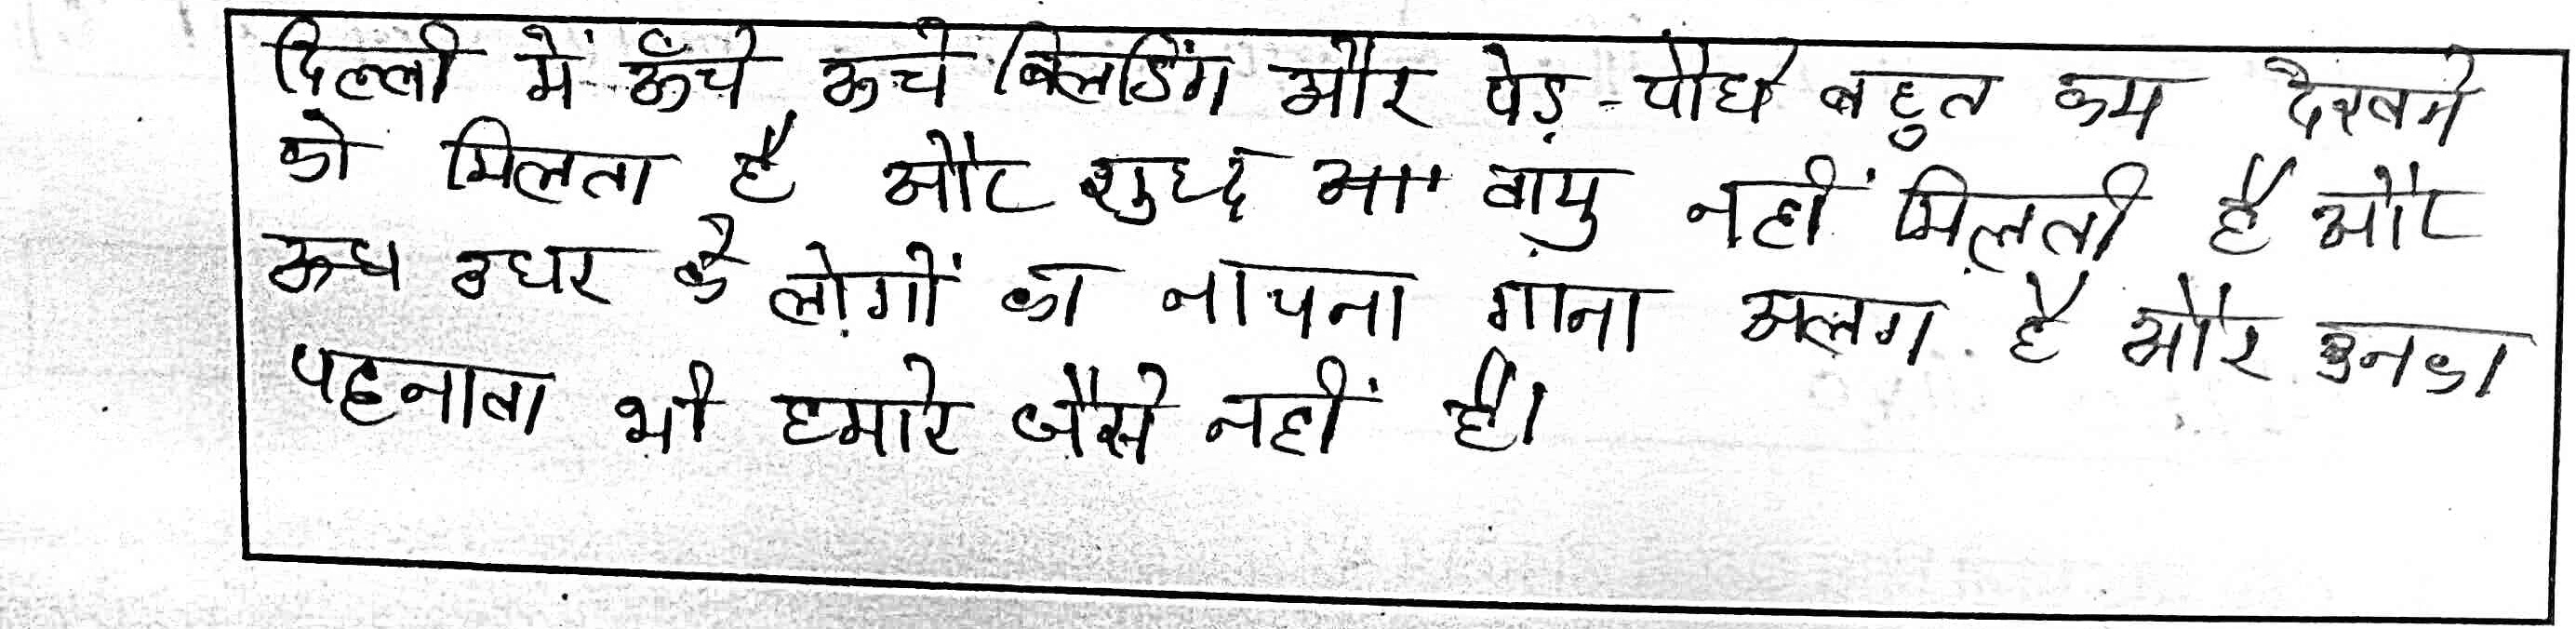 दिल्ली में ऊँचे ऊचे बिलडिंग और पेड़-पौधे बहुत कम देखने
को मिलता है और शुध्द वायु नहीं मिलती है और
उधर के लोगों का नाचना गाना अलग है और उनका
पहनावा भी हमारे जैसे नहीं है।